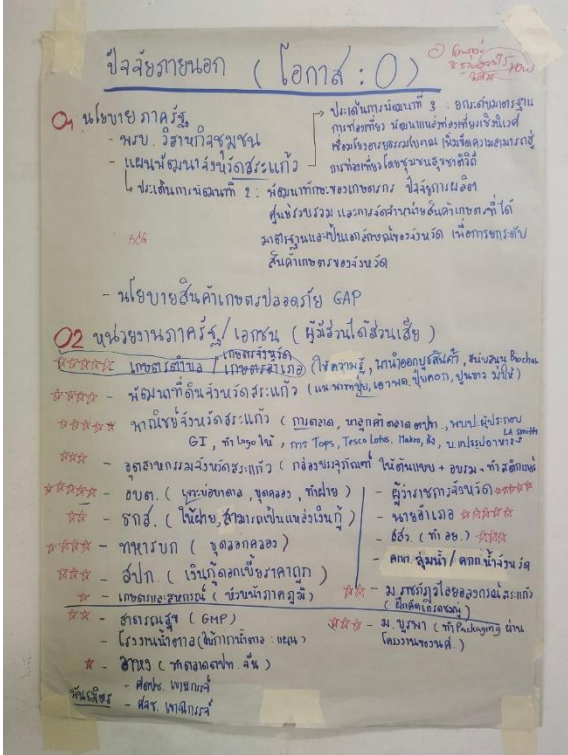 ปัจจัยภายนอก ( โอกาส : O )
O1 นโยบายภาครัฐ
- พรบ. วิสาหกิจชุมชน
- แผนพัฒนาจังหวัดสระแก้ว
ประเด็นการพัฒนาที่ 3 : ยกระดับมาตรฐาน
การท่องเที่ยว พัฒนาแหล่งท่องเที่ยวเชิงนิเวศ
เชื่อมโยงอารยธรรมโบราณ เพิ่มขีดความสามารถสู่
การท่องเที่ยวโดยชุมชนสุขชาติวิถี
ประเด็นการพัฒนาที่ 2 : พัฒนาทักษะของเกษตรกร ปัจจัยการผลิต
ศูนย์รวบรวม และการจัดจำหน่ายสินค้าเกษตรที่ได้
มาตรฐานและเป็นเอกลักษณ์ของจังหวัด เพื่อการยกระดับ
สินค้าเกษตรของจังหวัด
- นโยบายสินค้าเกษตรปลอดภัย GAP
O2 หน่วยงานภาครัฐ/เอกชน ( ผู้มีส่วนได้ส่วนเสีย )
เกษตรจังหวัด
เกษตรตำบล / เกษตรอำเภอ (ให้ความรู้, พาไปออกบูธสินค้า, สนับสนุน
- พัฒนาที่ดินจังหวัดสระแก้ว (
- พาณิชย์จังหวัดสระแก้ว ( การตลาด, หาลูกค้าตลาดตปท., พบปะผู้ประกอบ
GI, ทำ logo ให้, การ Tops, Tesco Lotus, Makro,
- อุตสาหกรรมจังหวัดสระแก้ว ( กล่องบรรจุภัณฑ์ ให้ต้นแบบ + อบรม + ทำสติกเกอร์
- อบต. ( เจาะบ่อบาดาล, ขุดคลอง, ทำฝาย )
- ธกส. ( ให้ฝาย, สามารถเป็นแหล่งเงินกู้ )
- ทหารบก ( ขุดลอกคลอง )
- สปก. ( เงินกู้ดอกเบี้ยราคาถูก )
- เกษตรและสหกรณ์ ( หัวหน้าภาคภูมิ )
- สาธารณสุข ( GMP )
- โรงงานน้ำตาล (ให้กากน้ำตาล :
- อาหง ( ทำตลาดตปท. จีน )
- ผู้ว่าราชการจังหวัด
- นายอำเภอ
- สสว. ( ทำ อย. )
- คกก. ลุ่มน้ำ / คกก. น้ำจังหวัด
- ม. ราชภัฏวไลยอลงกรณ์สระแก้ว
- ม. บูรพา ( ทำ Packaging ผ่าน
โครงงานของนศ. )